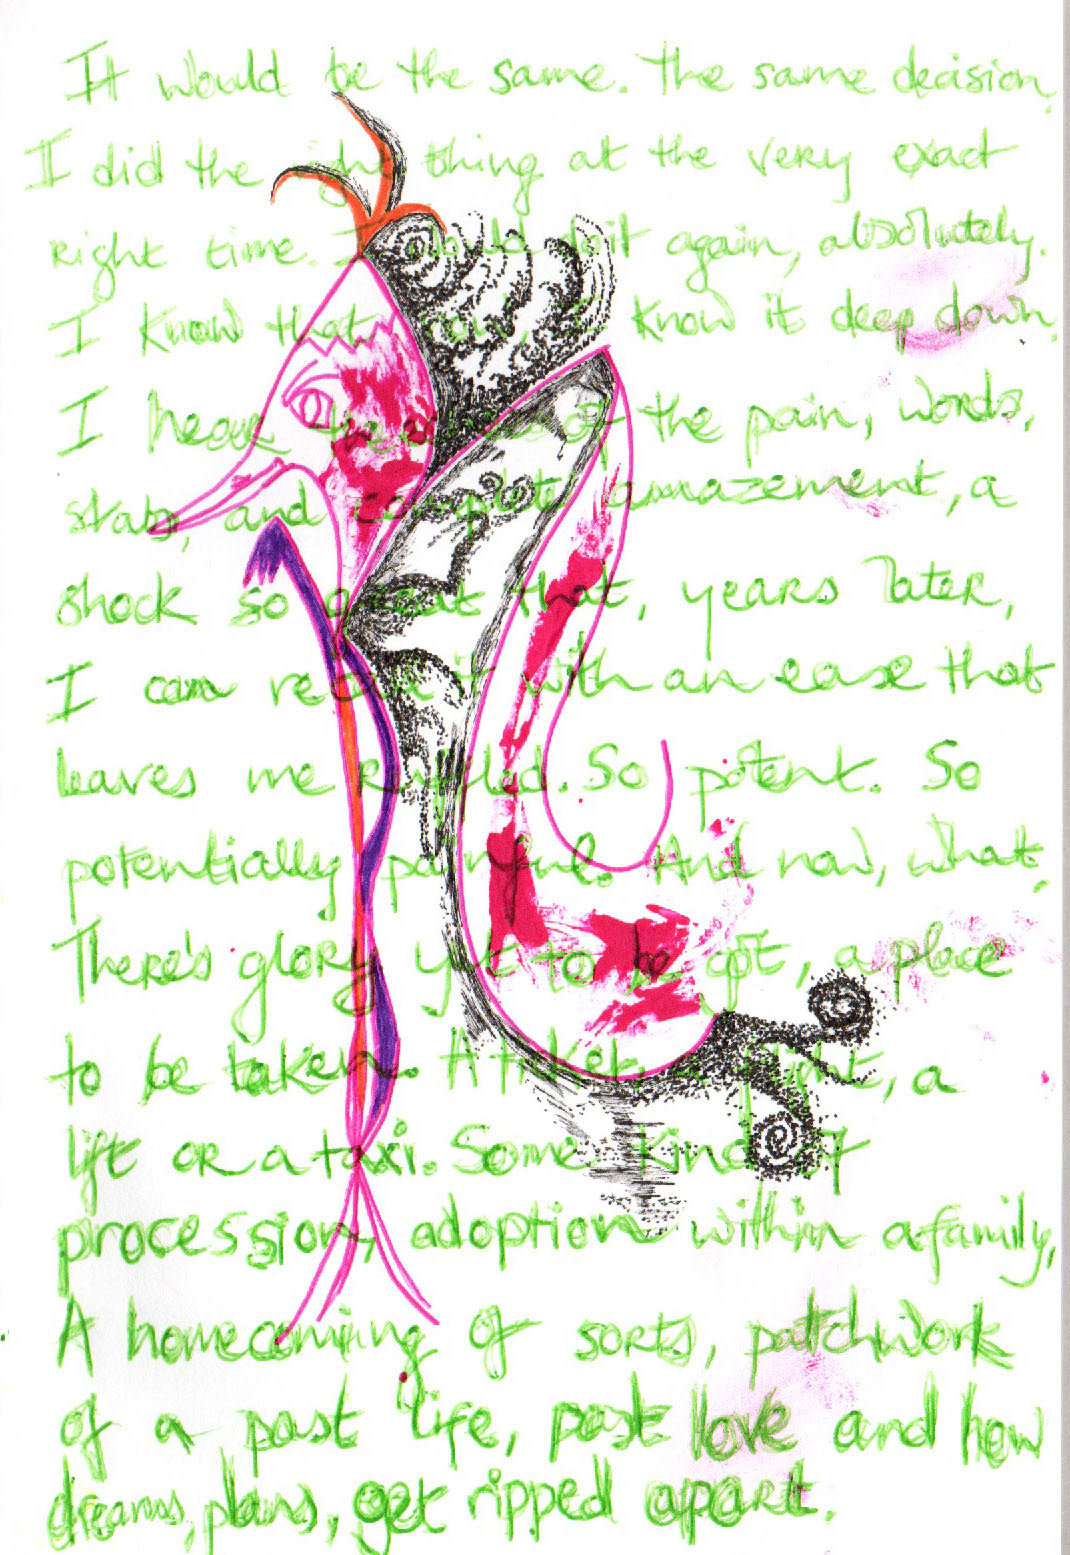 It would be the same. The same decision.
I did the right thing at the very exact
right time. I would do it again, absolutely.
I know that now, I know it deep down.
I hear the the pain, words,
stabs, and complete amazement, a
shock so great that, years later,
I can revisit it with an ease that
leaves me Riddled. So potent. So
potentially painful. And now, what.
There's glory yet to be got, a place
to be taken. A ticket, a flight, a
lift or a taxi. Some kind of
procession, adoption within a family,
A homecoming of sorts, patchwork
of a past life, past love and how
dreams, plans, get ripped apart.